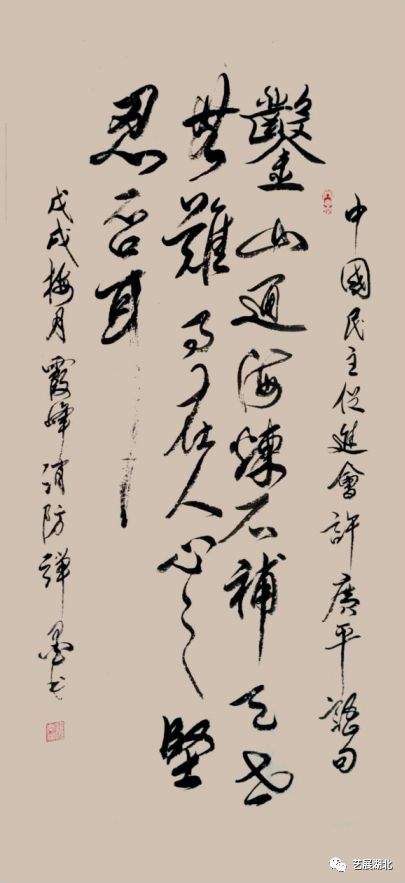 中國民主促進會許廣平語句
鑿山通海煉石補天世
無難事在人心之堅
忍否耳
戊戌梅月霞峰消防禅墨书
艺展湖北